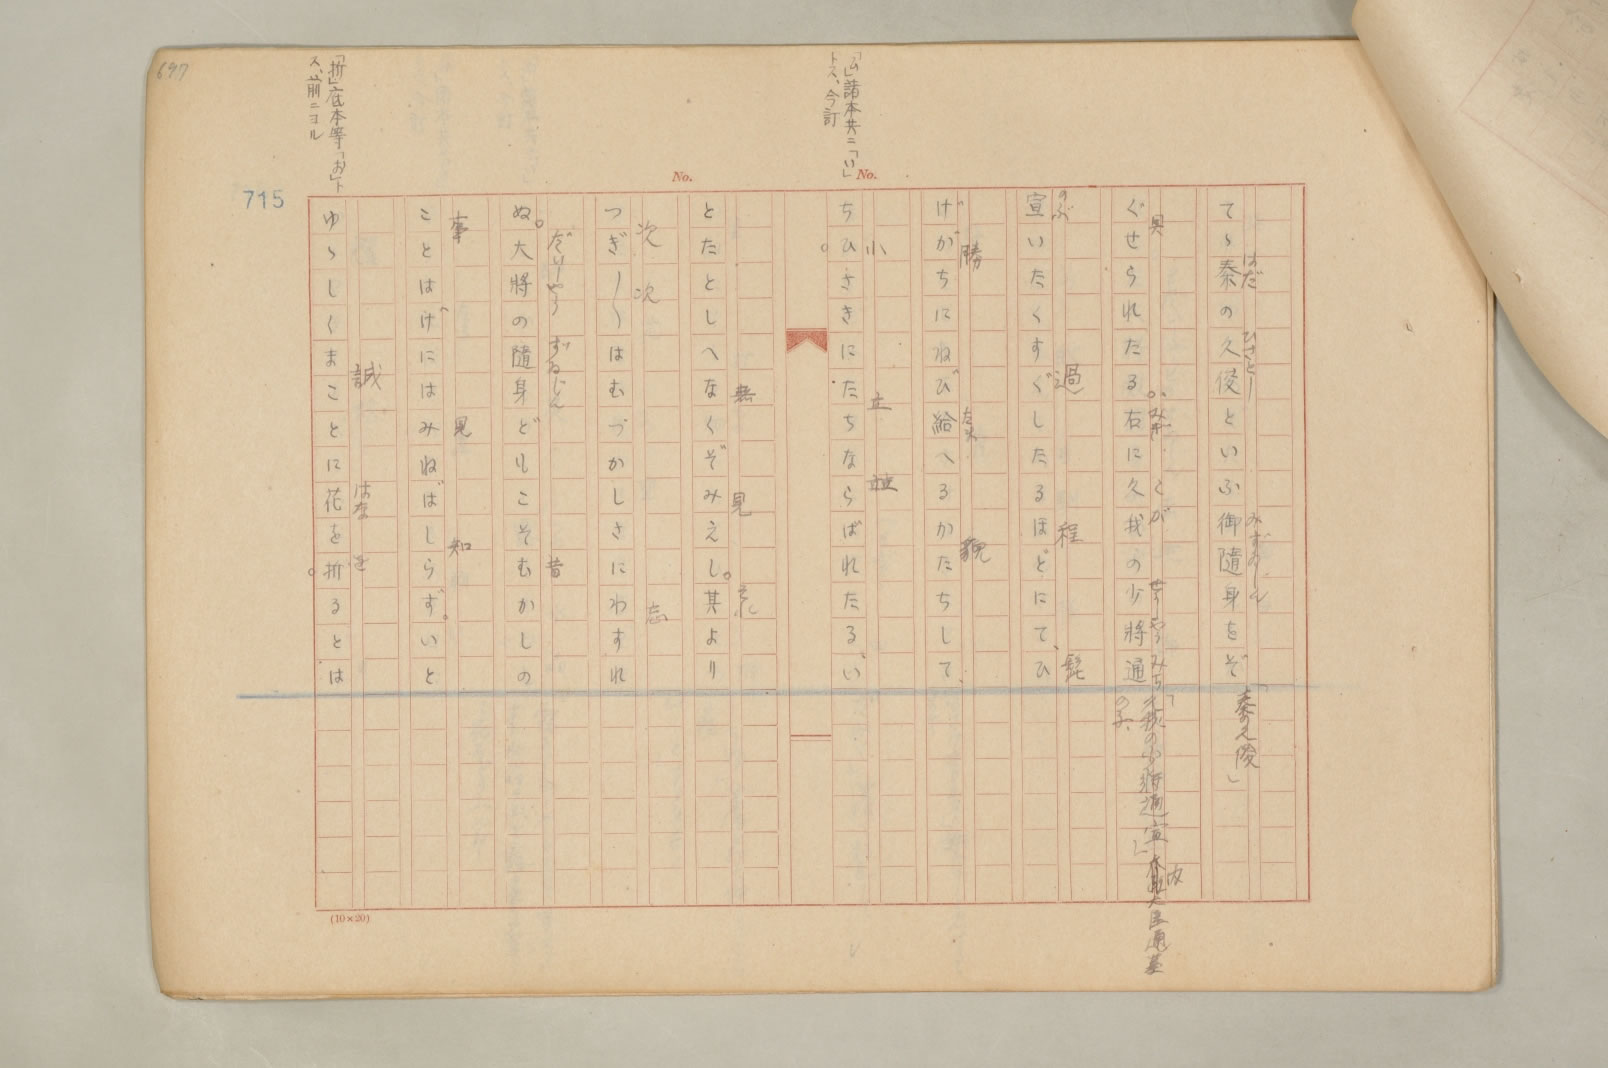 697
715
「の」諸本共ニ「い」
トス、今訂
「折」底本等「お」ト
ス、前ニヨル
No.
No.
はだ ひさとし みずいしん
てゝ秦の久俊といふ御隨身をぞ
「秦久俊」
具 みぎ くが せうしやうみち
ぐせられたる。右に久我の少將通
「久我の少將通宣」
内大臣通基
の子、
のぶ 過 程 髭
宣いたくすぐしたるほどにて、ひ
勝 たま 貌
げがちにねび給へるかたちして、
小 立 並
ちひさきにたちならばれたる、い
無 見 それ
とたとしへなくぞみえし。其より
次 次 忘
つぎ〳〵はむづかしさにわすれ
だいしやう ずゐじん 昔
ぬ。大將の隨身どもこそむかしの
事 見 知
ことはげにはみねばしらず。いと
誠 はな を
ゆゝしくまことに花を折るとは
(10×20)